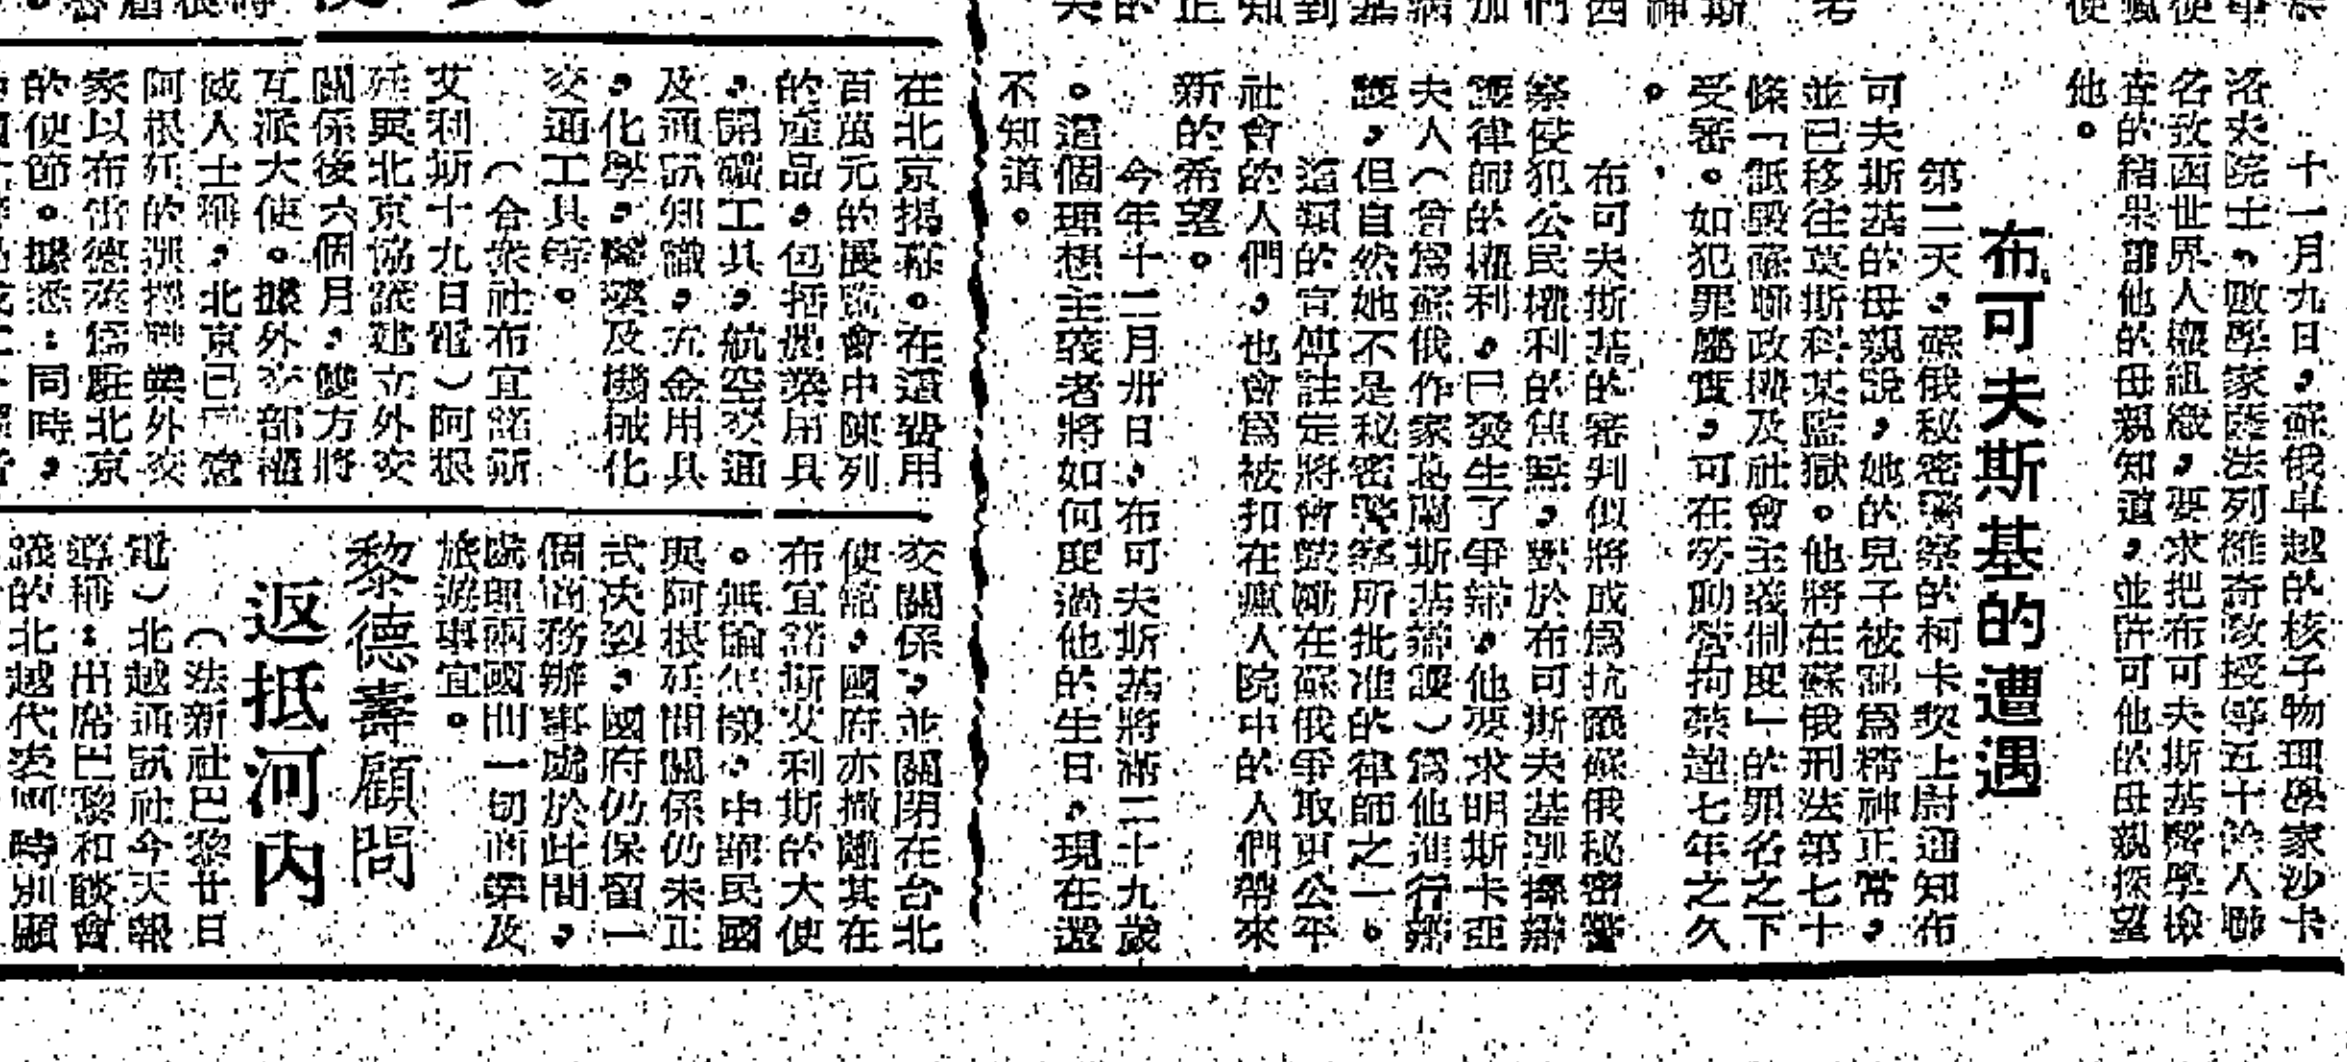 十一月九日，蘇俄卓越的核子物理學家沙卡
洛夫院士，數學家薩法列維奇教授等五十餘人聯
名致函世界人權組織，要求把布可夫斯基醫學檢
查的結果讓他的母親知道，並許可他的母親探望
他。
布可夫斯基的遭遇
第二天，蘇俄秘密警察的柯卡契上尉通知布
可夫斯基的母親說，她的兒子被認爲精神正常，
並已移往莫斯科某監獄。他將在蘇俄刑法第七十
條「詆毀蘇聯政權及社會主義制度」的罪名之下
受審。如犯罪屬實，可在勞動營拘禁達七年之久
。
布可夫斯基的審判似將成爲抗議蘇俄秘密警
察侵犯公民權利的焦點，對於布可斯夫基選擇辯
護律師的權利，已發生了爭辯，他要求明斯卡亞
夫人（曾爲蘇俄作家葛蘭斯基辯護）爲他進行辯
護，但自然她不是秘密警察所批准的律師之一。
這類的官傳註定將會鼓勵在蘇俄爭取更公平
社會的人們，也會爲被扣在瘋人院中的人們帶來
新的希望。
今年十二月卅日，布可夫斯基將滿二十九歲
。這個理想主義者將如何度過他的生日，現在還
不知道。
在北京揭幕。在這費用
百萬元的展覽會中陳列
的產品，包括農業用具
，開礦工具，航空交通
及通訊知識，五金用具
，化學，醫藥及機械化
交通工具等。
（合衆社布宜諾斯
艾利斯十九日電）阿根
廷與北京協議建立外交
關係後六個月，雙方將
互派大使。據外交部權
威人士稱，北京已同意
阿根廷的選擇職業外交
家以布雷德斯儒駐北京
的使節。據悉：同時，
交關係，並關閉在台北
使館，國府亦撤離其在
布宜諾斯艾利斯的大使
。無論怎樣，中華民國
與阿根廷間關係仍未正
式決裂，國府仍保留一
個商務辦事處於此間，
處理兩國間一切商業及
旅遊事宜。
黎德壽顧問
返抵河內
（法新社巴黎廿日
電）北越通訊社今天報
導稱：出席巴黎和談會
議的北越代表團特別顧